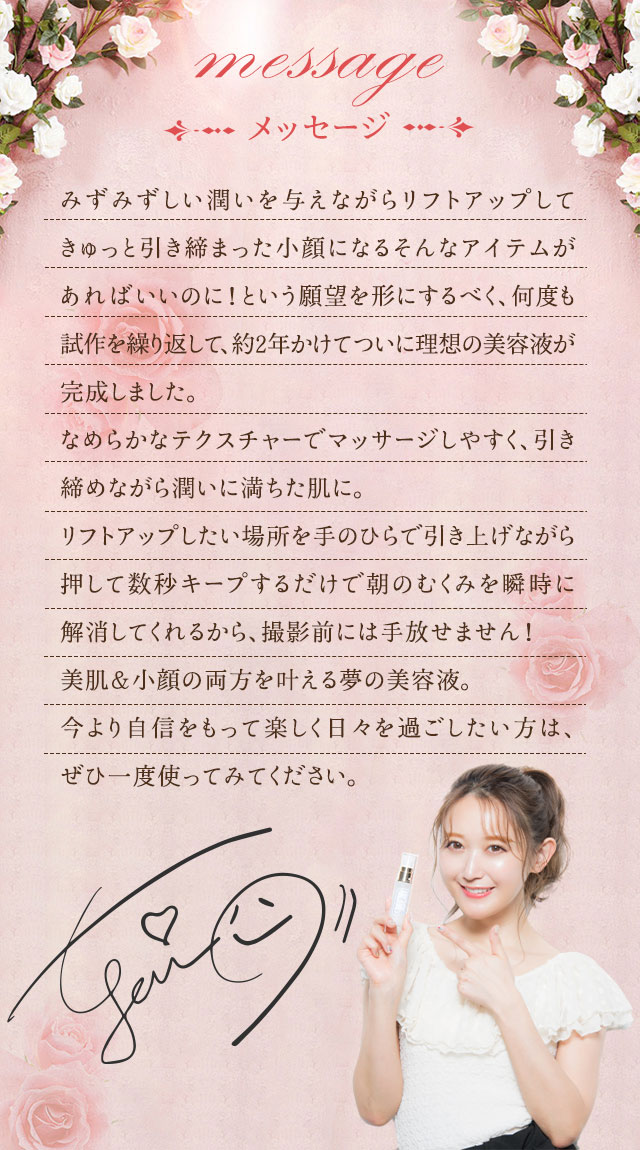 message
メッセージ
みずみずしい潤いを与えながらリフトアップして
きゅっと引き締まった小顔になるそんなアイテムが
あればいいのに！という願望を形にするべく、何度も
試作を繰り返して、約2年かけてついに理想の美容液が
完成しました。
なめらかなテクスチャーでマッサージしやすく、引き
締めながら潤いに満ちた肌に。
リフトアップしたい場所を手のひらで引き上げながら
押して数秒キープするだけで朝のむくみを瞬時に
解消してくれるから、撮影前には手放せません！
美肌＆小顔の両方を叶える夢の美容液。
今より自信をもって楽しく日々を過ごしたい方は、
ぜひ一度使ってみてください。